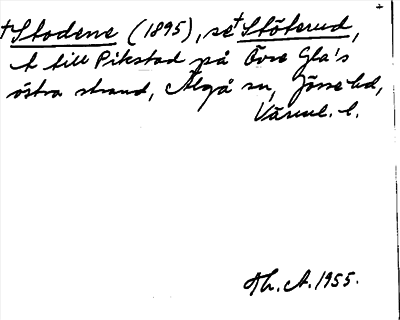 †Stodene (1895), se †Stöterud,
t till Pikstad på Övre Gla's
östra strand, Älgå sn, Jösse hd,
Värml. l.
Hr. A. 1955.